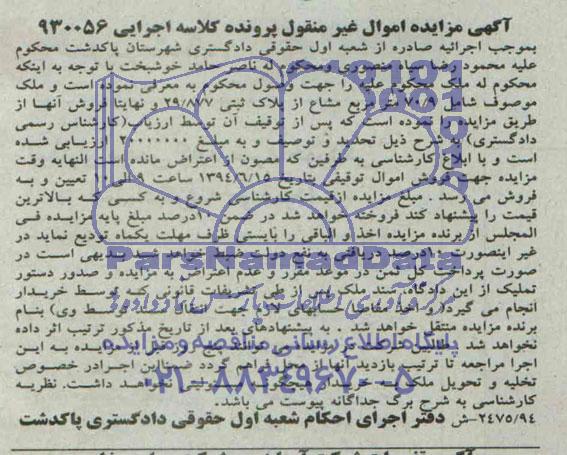 آگهی مزایده اموال غیر منقول پرونده کلاسه اجرایی ۹۳۰۰۵۶
بموجب اجرائیه صادره از شعبه اول حقوقی دادگستری شهرستان پاکدشت محکوم
علیه محمود رضا سیاه منصوری ومحکوم له ناصر حامد خوشبخت با توجه به اینکه
محکوم له ملک محکوم علیه را جهت وصول محکوم به معرفی نموده است و ملک
موصوف شامل ۷۰/۹ متر مربع مشاع از پلاک ثبتی ۲۹/۸۷۷ و نهایتا فروش آنها از
طریق مزایده را نموده است که پس از توقیف آن توسط ارزیاب(کارشناس رسمی
دادگستری) به شرح ذیل تحدید و توصیف و به مبلغ ارزیابی شده
است و با ابلاغ کارشناسی به طرفین که مصون از اعتراض مانده است النهایه وقت
مزایده جهت فروش اموال توقیفی بتاریخ ۱۳۹۴/۶/۱۵ ساعت ۹ الی ۱۰ تعیین و به
فروش می رسد . مبلغ مزایده ازقیمت کارشناسی شروع و به کسی که بالاترین
قیمت را پیشنهاد کند فروخته خواهد شد در ضمن ۱۰درصد مبلغ پایه مزایده فی
المجلس از برنده مزایده اخذ و الباقی را بایستی ظرف مهلت یکماه تودیع نماید در
غیر اینصورت ۱۰درصد دریافتی به نفع دولت ضبط خواهد شد بدیهی است در
صورت پرداخت کل ثمن در موعد مقرر و عدم اعتراض به مزایده و صدور دستور
تملیک از این دادگاه سند ملک پس از طی تشریفات قانونی که توسط خریدار
انجام می گیرد(و اخذ مفاصا حسابهای لازم جهت انتقال سند توسط وی) بنام
برنده مزایده منتقل خواهد شد . به پیشنهادهای بعد از تاریخ مذکور ترتیب اثر داده
نخواهد شد پنج روز قبل از مزایده به این
اجرا مراجعه تا ترتیب بازدید آنها از محل فراهم گردد ضمنا این اجرا در خصوص
تخلیه و تحویل ملک نخواهد داشت. نظریه
کارشناسی به شرح برگ جداگانه پیوست می باشد.
۲۴۷۵/۹۴-ش دفتر اجرای احکام شعبه اول حقوقی دادگستری پاکدشت
ParsNamadData
پایگاه اطلاع رسانی مناقصه و مزایده
۰۲۱-۸۸۳۴۹۶۷۰-۵